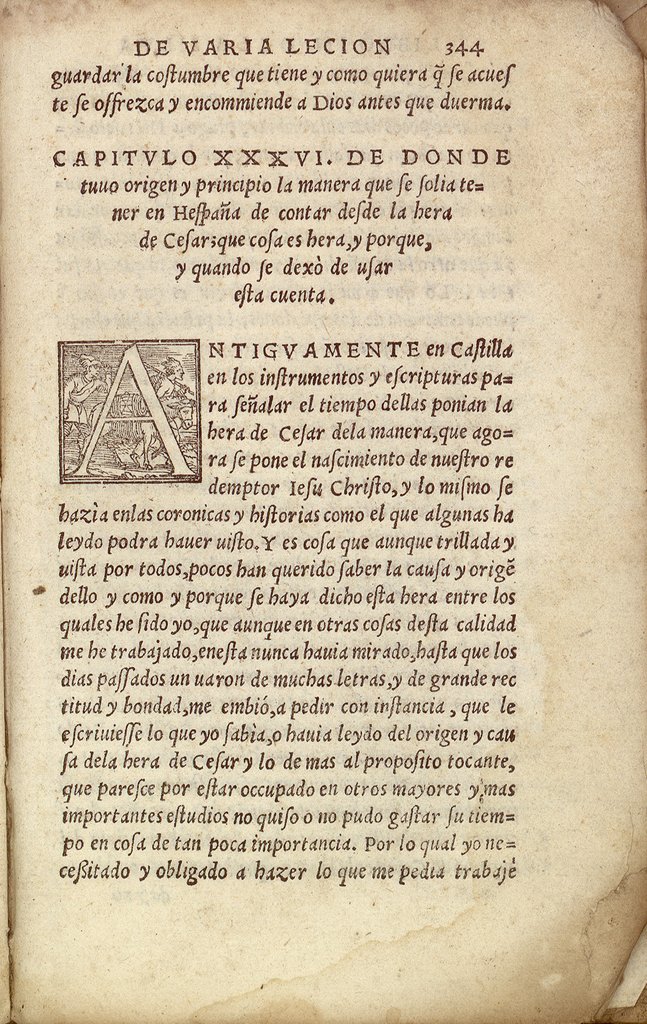 DE VARIA LECION 344
guardar la coſtumbre que tiene y como quiera q̃ ſe acueſ
te ſe offrezca y encommiende a Dios antes que duerma.
CAPITVLO XXXVI. DE DONDE
tuuo origen y principio la manera que ſe ſolia te=
ner en Heſpaña de contar deſde la hera
de Ceſar; que coſa es hera, y porque,
y quando ſe dexò de uſar
eſta cuenta.
ANTIGVAMENTE en Caſtilla
en los inſtrumentos y eſcripturas pa=
ra ſeñalar el tiempo dellas ponian la
hera de Ceſar dela manera, que ago=
ra ſe pone el naſcimiento de nueſtro re
demptor Ieſu Chriſto, y lo miſmo ſe
hazìa enlas coronicas y hiſtorias como el que algunas ha
leydo podra hauer uiſto. Y es coſa que aunque trillada y
uiſta por todos, pocos han querido ſaber la cauſa y origẽ
dello y como y porque ſe haya dicho eſta hera entre los
quales he ſido yo, que aunque en otras coſas deſta calidad
me he trabajado, eneſta nunca hauia mirado, haſta que los
dias paſſados un uaron de muchas letras, y de grande rec
titud y bondad, me embió, a pedir con inſtancia, que le
eſcriuieſſe lo que yo ſabìa, o hauia leydo del origen y cau
ſa dela hera de Ceſar y lo de mas al propoſito tocante,
que pareſce por eſtar occupado en otros mayores y mas
importantes eſtudios no quiſo o no pudo gaſtar ſu tiem=
po en coſa de tan poca importancia. Por lo qual yo ne=
ceßitado y obligado a hazer lo que me pedia trabajé